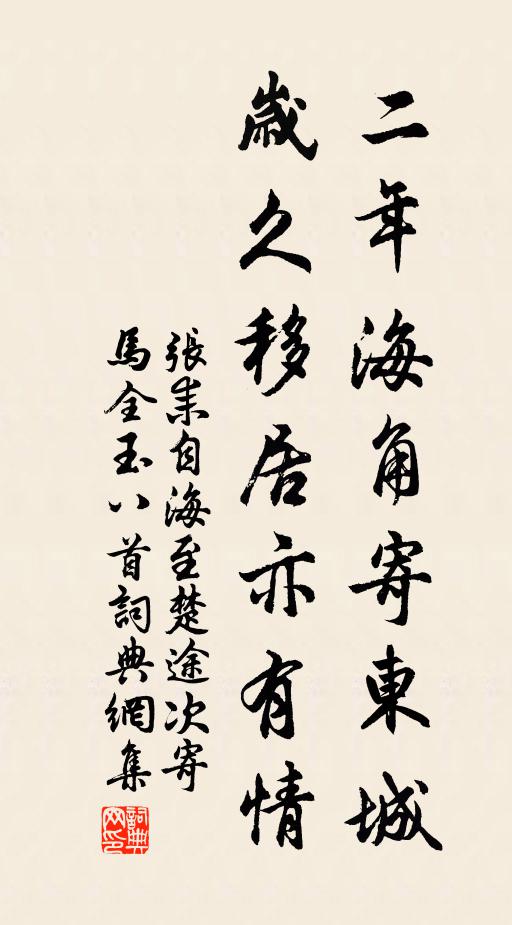 二年海角寄東城
歲久移居亦有情
張耒自海至楚途次寄
馬全玉八首詞典網集
詞典
网印